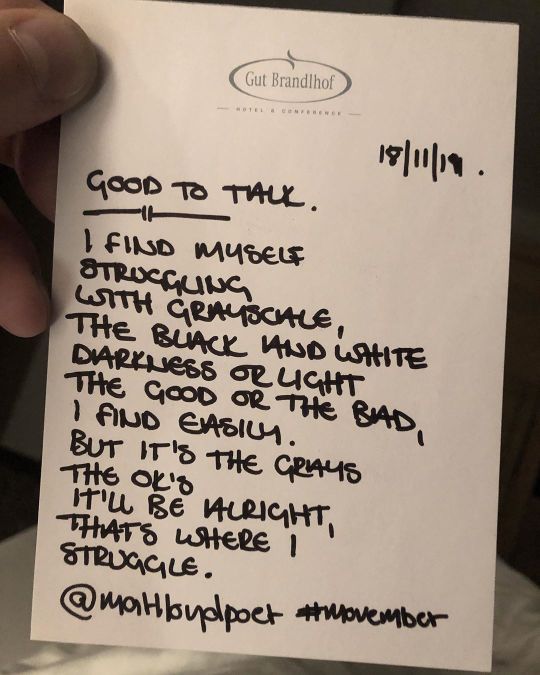 Gut Brandlhof
HOTEL & CONFERENCE
18/11/19.
GOOD TO TALK.
I FIND MYSELF
STRUGGLING
WITH GRAYSCALE,
THE BLACK AND WHITE
DARKNESS OR LIGHT
THE GOOD OR THE BAD,
I FIND EASILY.
BUT IT'S THE GRAYS
THE OK'S
IT'LL BE ALRIGHT,
THATS WHERE I
STRUGGLE.
@mattlloydpoet #movember